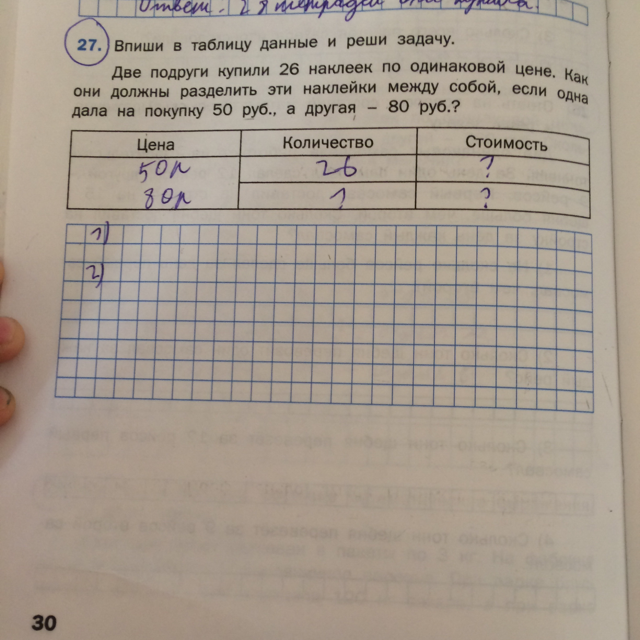 Ответ. 28 тетрадей они купили.
27. Впиши в таблицу данные и реши задачу.
Две подруги купили 26 наклеек по одинаковой цене. Как
они должны разделить эти наклейки между собой, если одна
дала на покупку 50 руб., а другая – 80 руб.?
Цена Количество Стоимость
50р 26 ?
80р ? ?
1)
2)
30